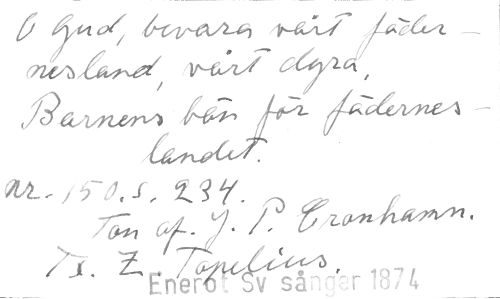 O Gud, bevara vårt fäder-
nesland, vårt dyra,
Barnens bön för fädernes-
landet.
nr. 150. s. 234.
Ton af. J. P. Cronhamn.
Tx. Z. Topelius.
Enerot Sv sånger 1874